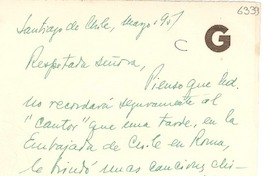 6339
Santiago de Chile, Mayo 1951
G
C
Respetada señora,
Pienso que Ud.
no recordará seguramente al
"cantor" que una tarde, en la
Embajada de Chile en Roma,
le brindó unas canciones chi-